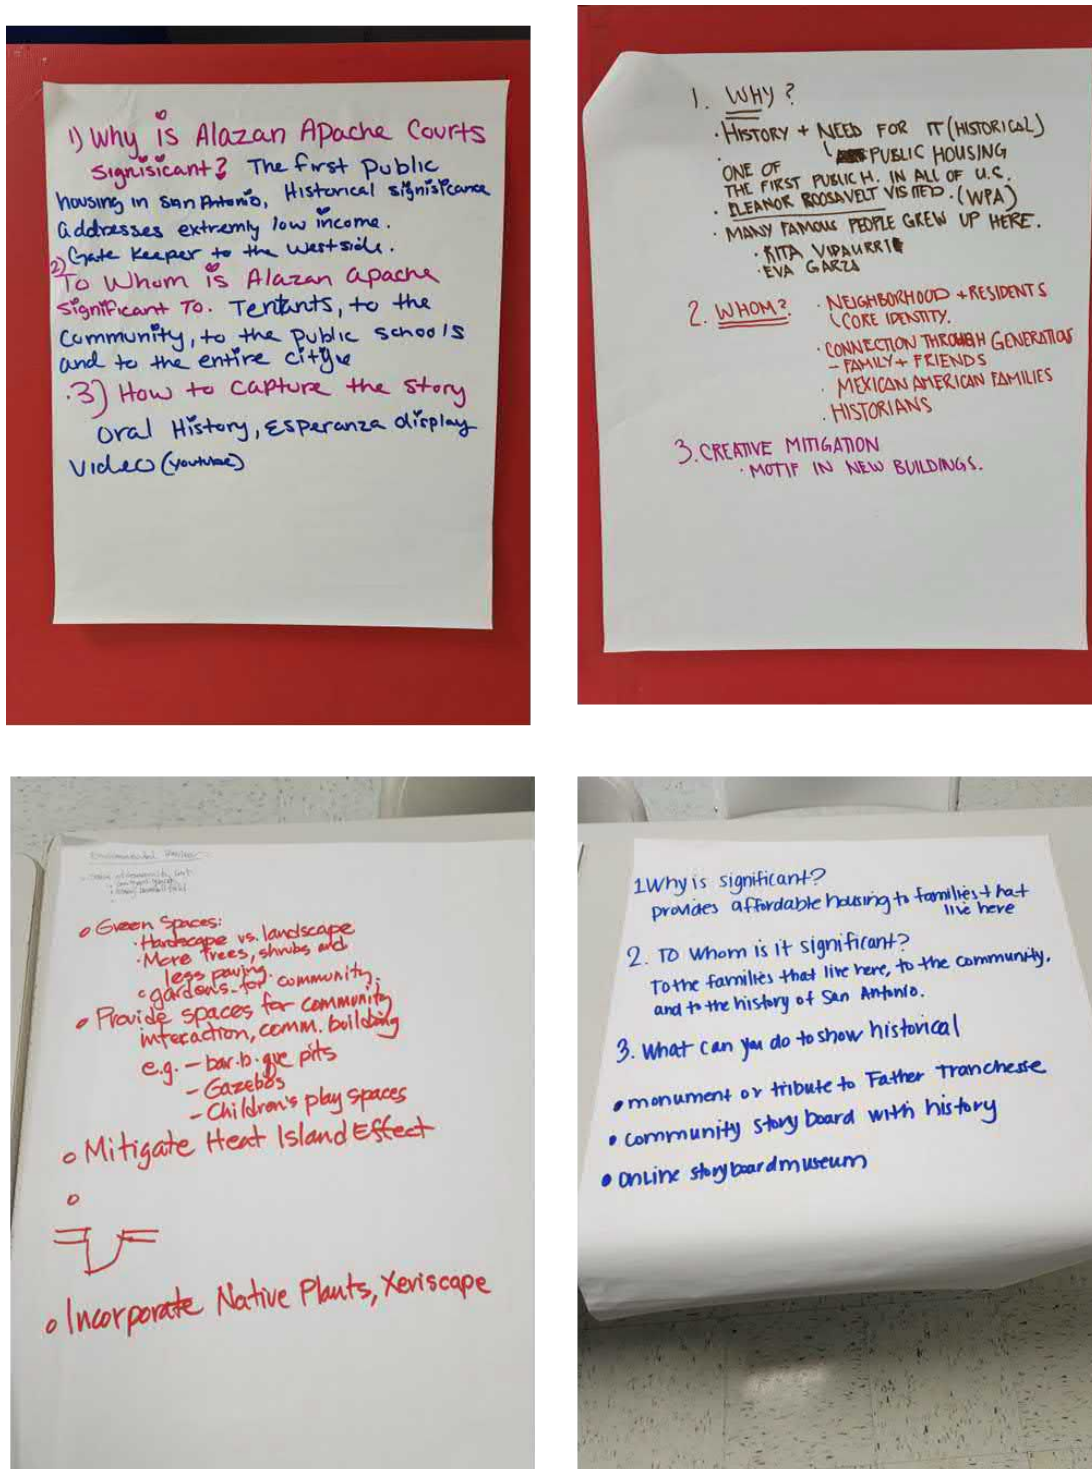 1) Why is Alazan Apache Courts
Signisicant? The first Public
housing in San Antonio, Historical signisicance
addresses extremly low income.
Gate Keeper to the Westside.
2)
To Whom is Alazan apache
significant To. Tentants, to the
Community, to the public schools
and to the entire city
.3) How to capture the story
Oral History, Esperanza display
Video (youtube)
1. WHY?
· HISTORY + NEED FOR IT (HISTORICAL)
PUBLIC HOUSING
· ONE OF
THE FIRST PUBLIC H. IN ALL OF U.S.
· ELEANOR ROOSAVELT VISITED. (WPA)
· MANY FAMOUS PEOPLE GREW UP HERE.
· RITA VIDAURRI
· EVA GARZA
2. WHOM? · NEIGHBORHOOD + RESIDENTS
CORE IDENTITY.
· CONNECTION THROUGH GENERATIONS
- FAMILY + FRIENDS
· MEXICAN AMERICAN FAMILIES
· HISTORIANS
3. CREATIVE MITIGATION
· MOTIF IN NEW BUILDINGS.
Environmental
Green Spaces:
· Hardscape vs. landscape
· More trees, shrubs and
less paving.
gardens for community.
Provide spaces for community
interaction, comm. building
e.g. - bar-b-que pits
- Gazebos
- Children's play spaces
Mitigate Heat Island Effect
Incorporate Native Plants, Xeriscape
1. Why is significant?
provides affordable housing to families that
live here
2. To Whom is it significant?
To the families that live here, to the community,
and to the history of San Antonio.
3. What can you do to show historical
• monument or tribute to Father Tranchesse
• community story board with history
• online storyboard museum